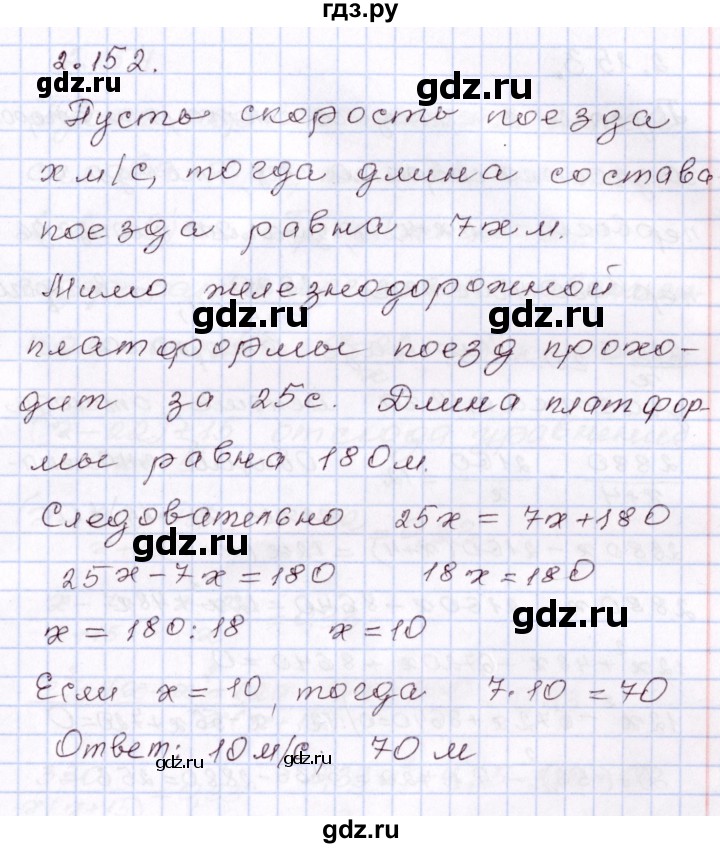 гдз.ру
2.152.
gdz.ru gdz.ru
Пусть скорость поезда
х м/с, тогда длина состава
поезда равна 7х м.
Мимо железнодорожной
gdz.ru gdz.ru
платформы поезд прохо-
дит за 25с. Длина платфор-
мы равна 180м.
Следовательно 25х = 7х+180
gdz.ru
25х-7х=180 18х=180
gdz.ru
х = 180:18 х=10
Если х = 10, тогда 7·10 =70
Ответ: 10м/с, 70 м
gdz.ru gdz.ru
gdz.ru